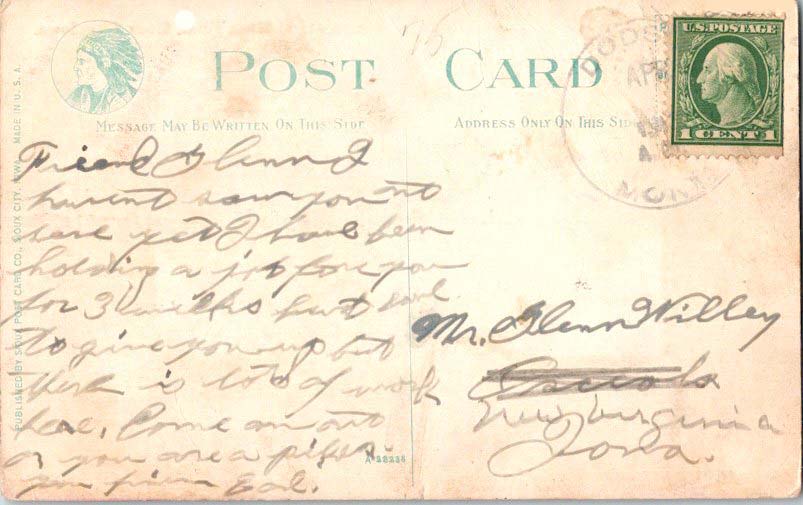 POST CARD
MESSAGE MAY BE WRITTEN ON THIS SIDE
ADDRESS ONLY ON THIS SIDE
U.S. POSTAGE
1 CENT 1
DODS
APR
MONT
PUBLISHED BY SIOUX POST CARD CO., SIOUX CITY, IOWA. MADE IN U. S. A.
Friend Glenn I
havent saw you out
here yet I have been
holding a job for you
for 3 weeks but had
to give you up but
there is lots of work
here. Come on out
or you are a
you Earl.
A-22236
Mr. Glenn Willey
Osceola
New Virginia
Iowa.